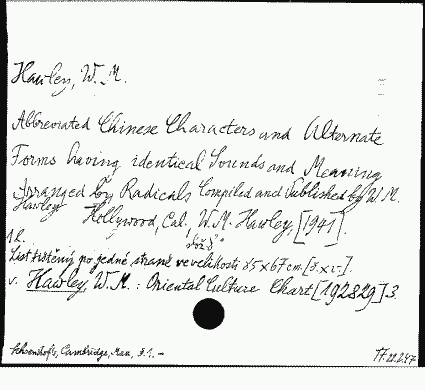 Hawley, W. M.
Abbreviated Chinese Characters and Alternate
Forms having identical Sounds and Meaning
Arranged by Radicals Compiled and Published by W. M.
Hawley Hollywood, Cal., W. M. Hawley, [1941].
1 l.
List tištěný po jedné straně ve velikosti 85 x 67 cm.
v. Hawley, W. M. : Oriental Culture Chart [192829] 3.
Cambridge, Mass., $1.-